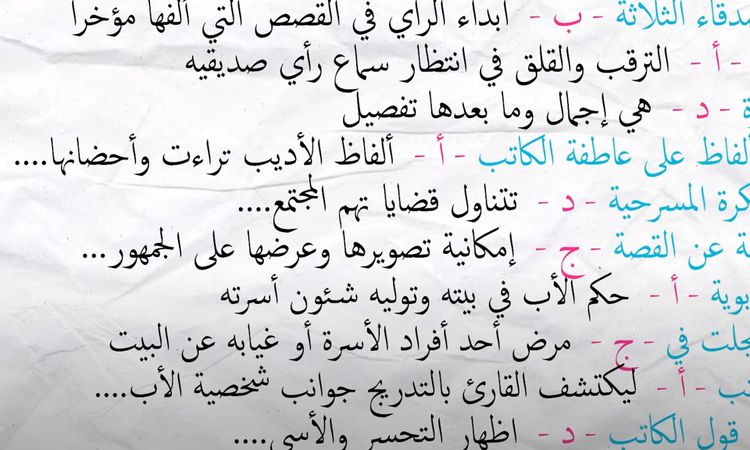 الثلاثة - ب - ابداء الرأي في القصص التي ألفها مؤخرا
- أ - الترقب والقلق في انتظار سماع رأي صديقيه
ة - د - هي إجمال وما بعدها تفصيل
ألفاظ على عاطفة الكاتب - أ - ألفاظ الأديب تراءت وأحضانها....
المسرحية - د - تتناول قضايا تهم المجتمع....
عن القصة - ج - إمكانية تصويرها وعرضها على الجمهور...
- أ - حكم الأب في بيته وتوليه شئون أسرته
في - ج - مرض أحد أفراد الأسرة أو غيابه عن البيت
- أ - ليكتشف القارئ بالتدريج جوانب شخصية الأب....
قول الكاتب - د - اظهار التحسر والأسى....